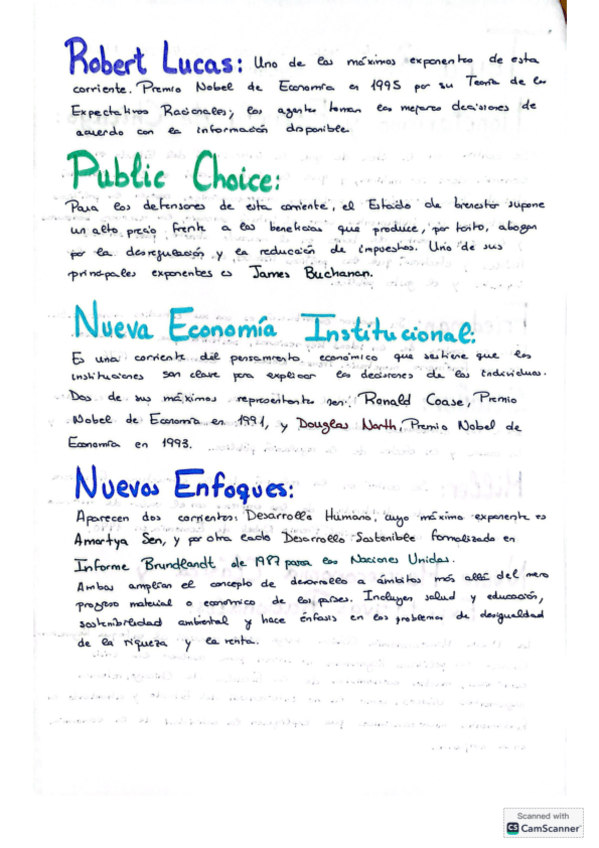 Robert Lucas: Uno de los máximos exponentes de esta
corriente. Premio Nobel de Economía en 1995 por su Teoría de las
Expectativas Racionales; los agentes toman las mejores decisiones de
acuerdo con la información disponible.
Public Choice:
Para los defensores de esta corriente, el Estado de bienestar supone
un alto precio frente a los beneficios que produce, por tanto, abogan
por la desregulación y la reducción de impuestos. Uno de sus
principales exponentes es James Buchanan.
Nueva Economía Institucional:
Es una corriente del pensamiento económico que sostiene que las
instituciones son clave para explicar las decisiones de los individuos.
Dos de sus máximos representantes son: Ronald Coase, Premio
Nobel de Economía en 1991, y Douglas North, Premio Nobel de
Economía en 1993.
Nuevos Enfoques:
Aparecen dos corrientes: Desarrollo Humano, cuyo máximo exponente es
Amartya Sen, y por otro lado Desarrollo Sostenible formalizado en
Informe Brundlandt, de 1987 para las Naciones Unidas.
Ambas amplían el concepto de desarrollo a ámbitos más allá del mero
progreso material o económico de los países. Incluyen salud y educación,
sostenibilidad ambiental y hace énfasis en los problemas de desigualdad
de la riqueza y la renta.
Scanned with
CS CamScanner